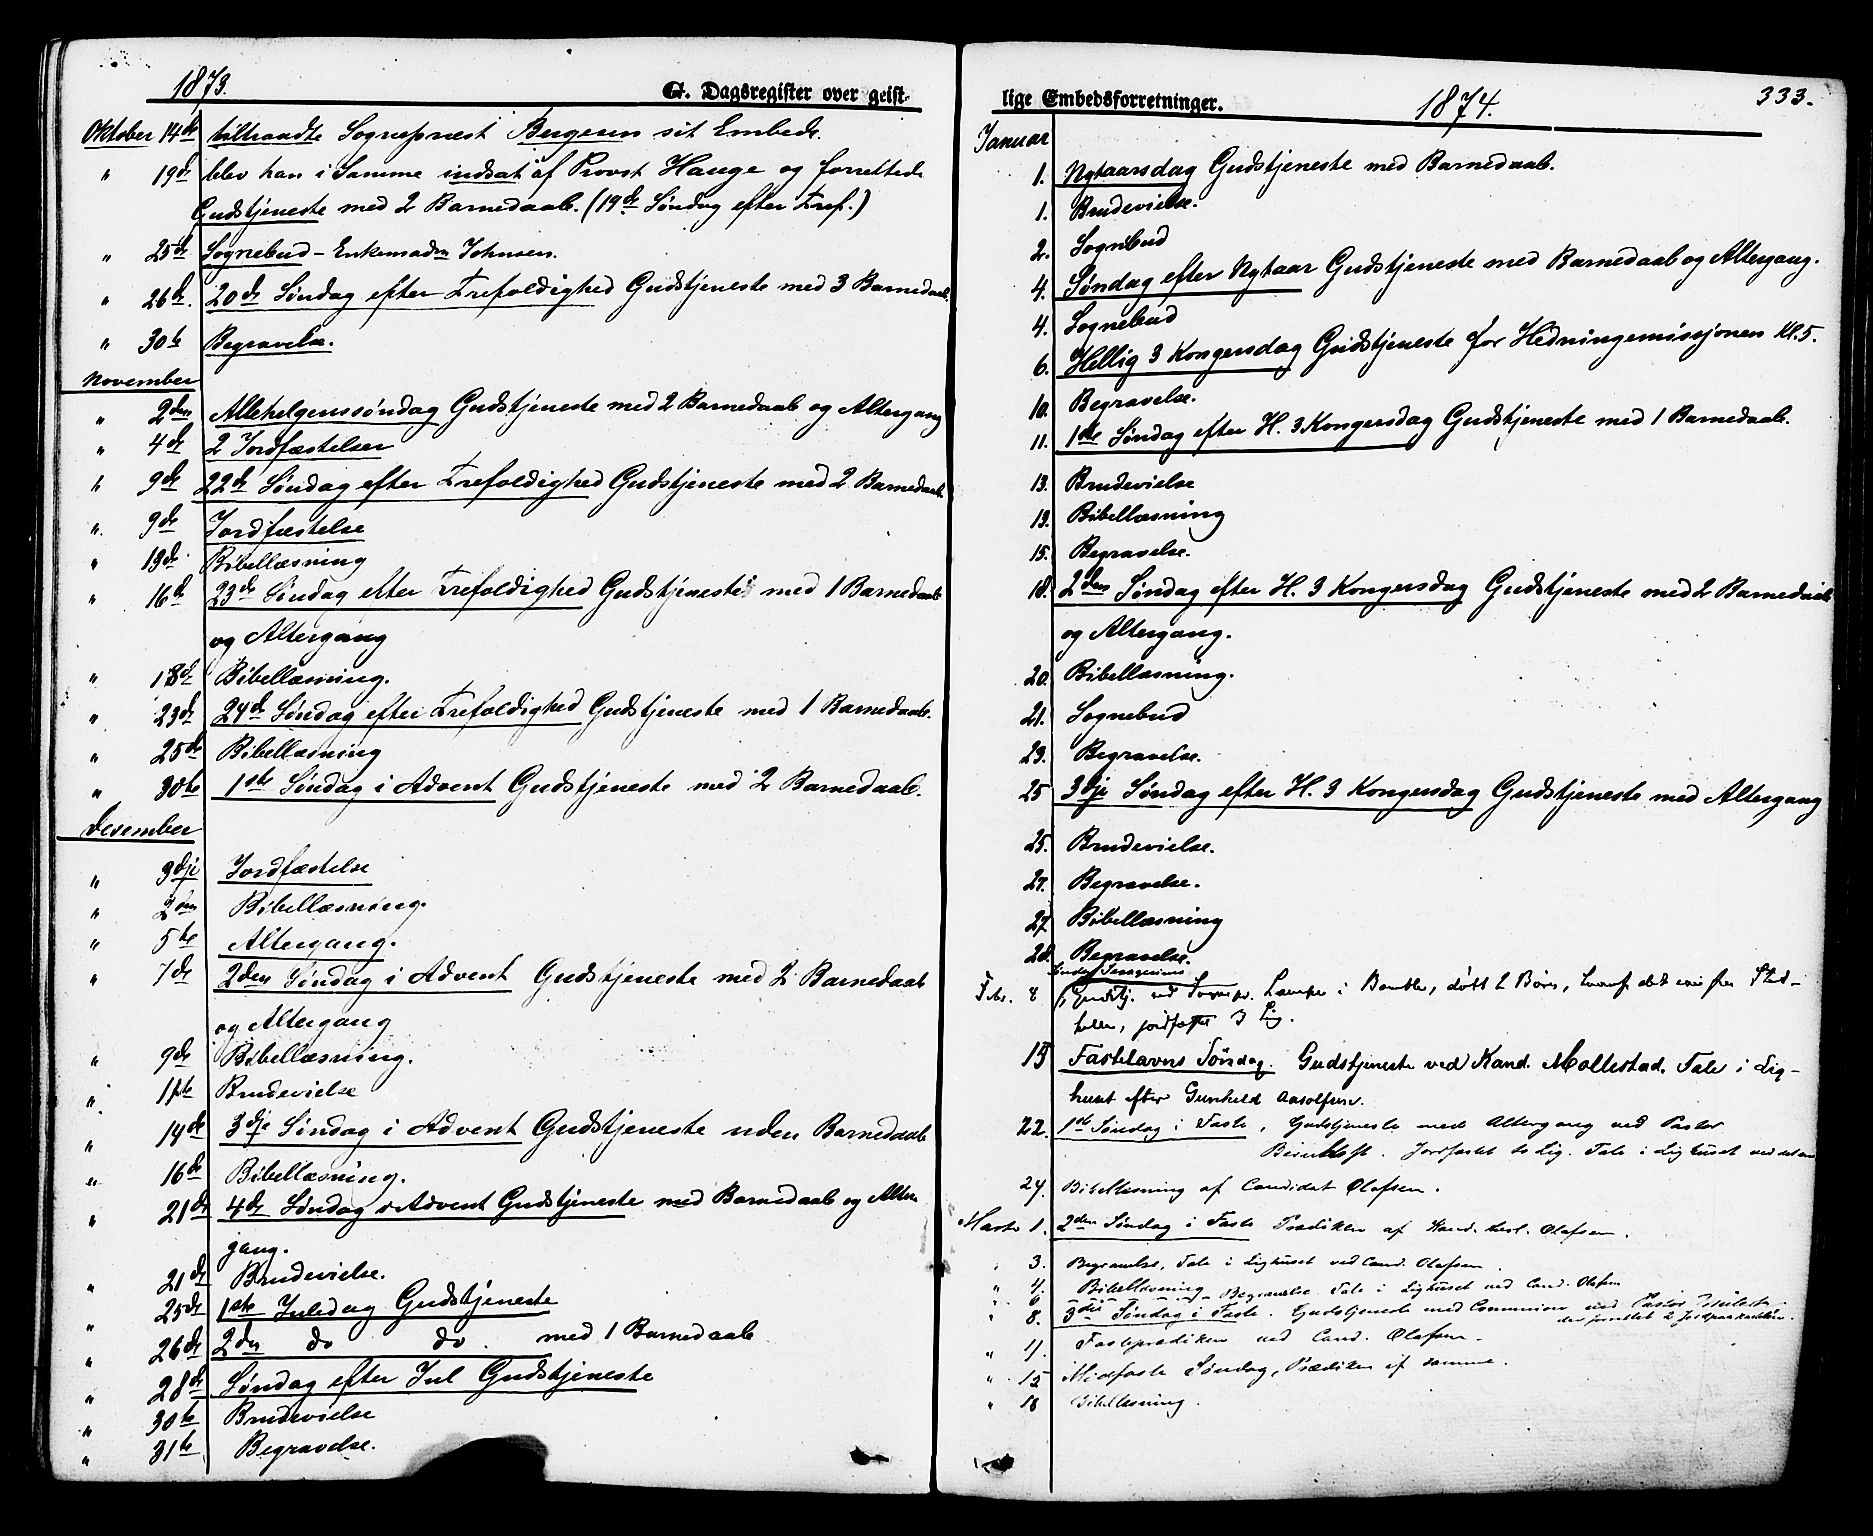 1873.
G. Dagsregister over geist-
Oktober 14de tiltraadte Sognepræst Bergesen sit Embede.
" 19de blev han i Samme indsat af Provst Hauge og forrettede
Gudstjeneste med 2 Barnedaab. (19de Søndag efter Tref.)
" 25de Sognebud - Enkemadm Johnsen.
" 26de 20de Søndag efter Trefoldighed Gudstjeneste med 3 Barnedaab.
" 30te Begravelse.
November
" 2den Allehelgenssøndag Gudstjeneste med 2 Barnedaab og Altergang
" 4de 2 Jordfæstelser
" 9de 22de Søndag efter Trefoldighed Gudstjeneste med 2 Barnedaab
" 9de Jordfæstelse
" 13de Bibellæsning
" 16de 23de Søndag efter Trefoldighed Gudstjeneste med 1 Barnedaab
og Altergang
" 18de Bibellæsning.
" 23de 24de Søndag efter Trefoldighed Gudstjeneste med 1 Barnedaab.
" 25de Bibellæsning
" 30te 1ste Søndag i Advent Gudstjeneste med 2 Barnedaab.
Desember
" 3dje Jordfæstelse
" 2den Bibellæsning.
" 5te Altergang.
" 7de 2den Søndag i Advent Gudstjeneste med 2 Barnedaab
og Altergang
" 9de Bibellæsning.
" 11te Brudevielse
" 14de 3dje Søndag i Advent Gudstjeneste uden Barnedaab
" 16de Bibellæsning.
" 21de 4de Søndag i Advent Gudstjeneste med Barnedaab og Alter
gang.
" 21de Brudevielse.
" 25de 1ste Juledag Gudstjeneste
" 26de 2den do do. med 1 Barnedaab
" 28de Søndag efter Jul Gudstjeneste
" 30te Brudevielse
" 31te Begravelse.
lige Embedsforretninger.
1874.
333.
Januar
1. Nytaarsdag Gudstjeneste med Barnedaab.
1. Brudevielse.
2. Sognebud
4. Søndag efter Nytaar Gudstjeneste med Barnedaab og Altergang.
4. Sognebud
6. Hellig 3 Kongersdag Gudstjeneste for Hedningemissjonen Kl. 5.
10. Begravelse.
11. 1ste Søndag efter H. 3 Kongersdag Gudstjeneste med 1 Barnedaab.
13. Brudevielse
13. Bibellæsning
15. Begravelse.
18. 2den Søndag efter H. 3 Kongersdag Gudstjeneste med 2 Barnedaab
og Altergang.
20. Bibellæsning.
21. Sognebud
23. Begravelse.
25 3dje Søndag efter H. 3 Kongersdag Gudstjeneste med Altergang
25. Brudevielse.
27. Begravelse.
27 Bibellæsning
28. Begravelse.
Søndag Sexagesima
Febr. 8 Gudstj. ved Sognepr. Lampe i Bamble, døbt 2 Børn, hvoraf det ene fra Stad-
helle, jordfæstet 3 Lig.
15 Fastelavns Søndag. Gudstjeneste ved Kand. Mollestad. Tale i Lig-
huset efter Gunhild Aasolfsen.
22. 1ste Søndag i Faste, Gudstjeneste med Altergang ved Pastor
Jordfæstet to Lig. Tale i Lighuset ved
24. Bibellæsning af Candidat Olafsen.
Marts 1. 2den Søndag i Faste Prædiken af Kand. theol. Olafsen.
" 3. Begravelse, Tale i Lighuset ved Cand. Olafsen.
" 4. Bibellæsning
" 6 Begravelse Tale i Lighuset ved Cand. Olafsen
" 8. 3die Søndag i Faste. Gudstjeneste med Communion ved Pastor
der forrettet 2 Jordpaakastelser.
" 11. Fasteprædiken ved Cand. Olafsen.
" 15 Midfaste Søndag, Prædiken af samme.
" 18 Bibellæsning.